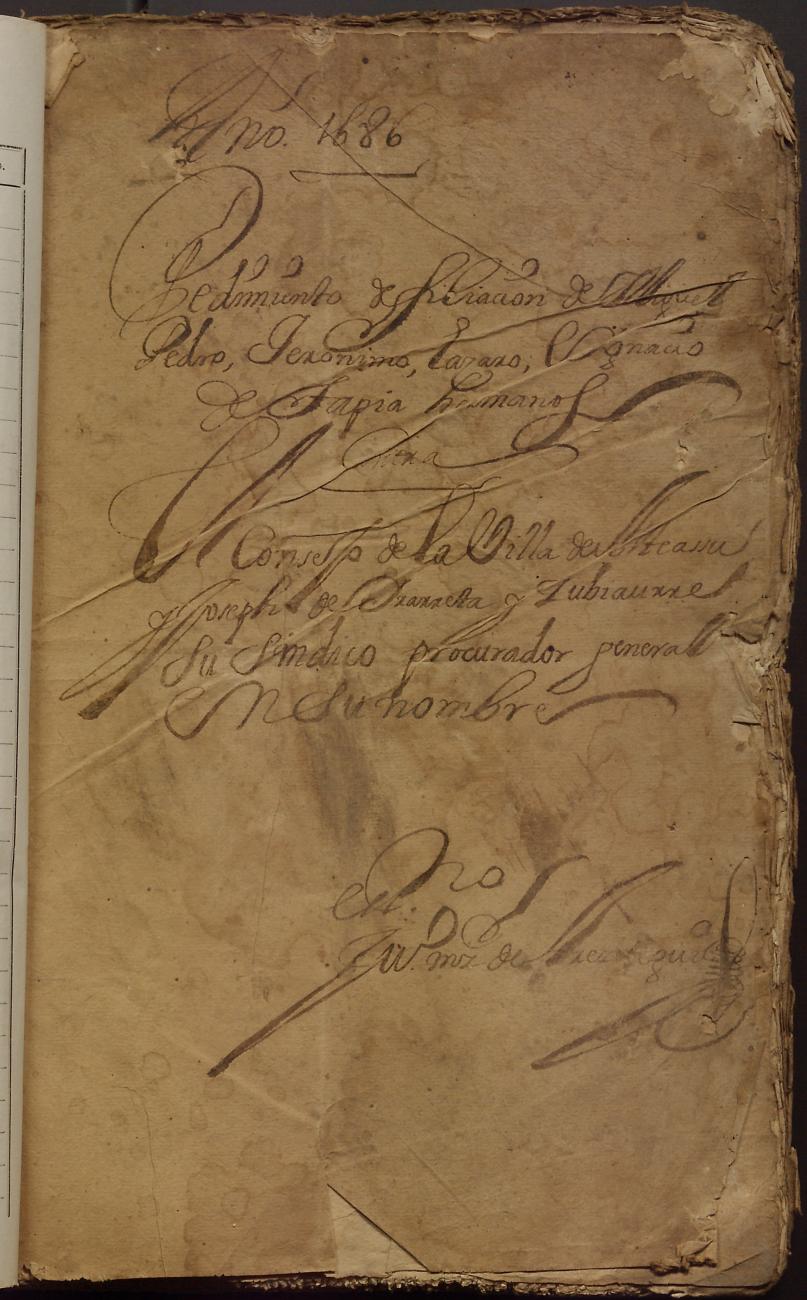 Año. 1686
Pedimiento de filiacion de Miguel
Pedro, Jeronimo, Lazaro, E Ygnacio
de Tapia hermanos
Contra
El Consejo de la Villa de Asteassu
y Joseph de Ibarreta y Zubiaurre
Su Sindico procurador general
en Su nombre
no
Ju. mrz de